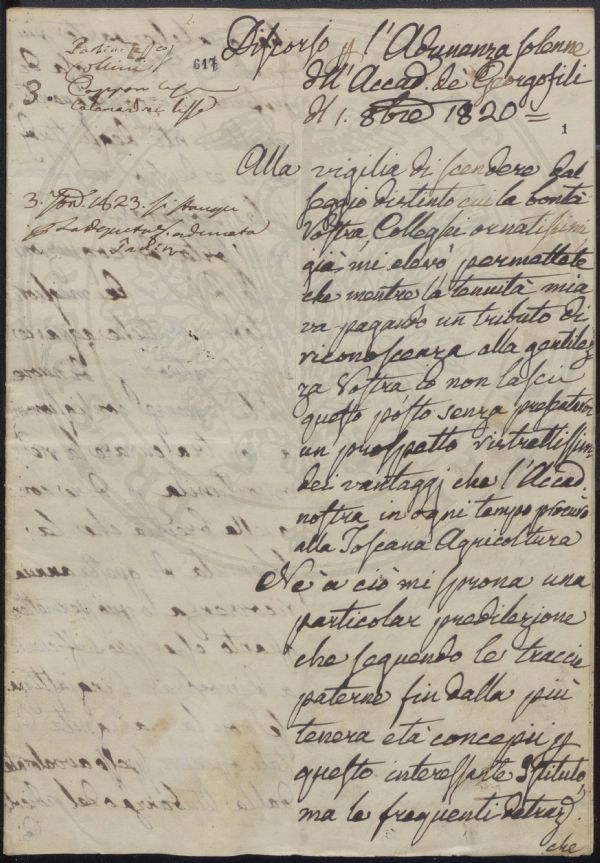 617
Discorso p l'Adunanza solenne
dell'Accad. de Georgofili
del 1. 8bre 1820 =
1
Alla vigilia di scendere dal
seggio distinto cui la bontà
Vostra, Colleghi ornatissimi
già mi elevò, permettete
che mentre la tenuità mia
va pagando un tributo di
riconoscenza alla gentilez
za Vostra, Io non lasci
questo posto senza presentarvi
un prospetto ristrettissimo
dei vantaggi che l'Accad.
nostra in ogni tempo procurò
alla Toscana Agricoltura
Nè a ciò mi sprona una
particolar predilezione
che seguendo le traccie
paterne fin dalla più
tenera età concepii p
questo interessante Istituto,
ma le frequenti detraz.
che
3.
3. 1823. si stampi